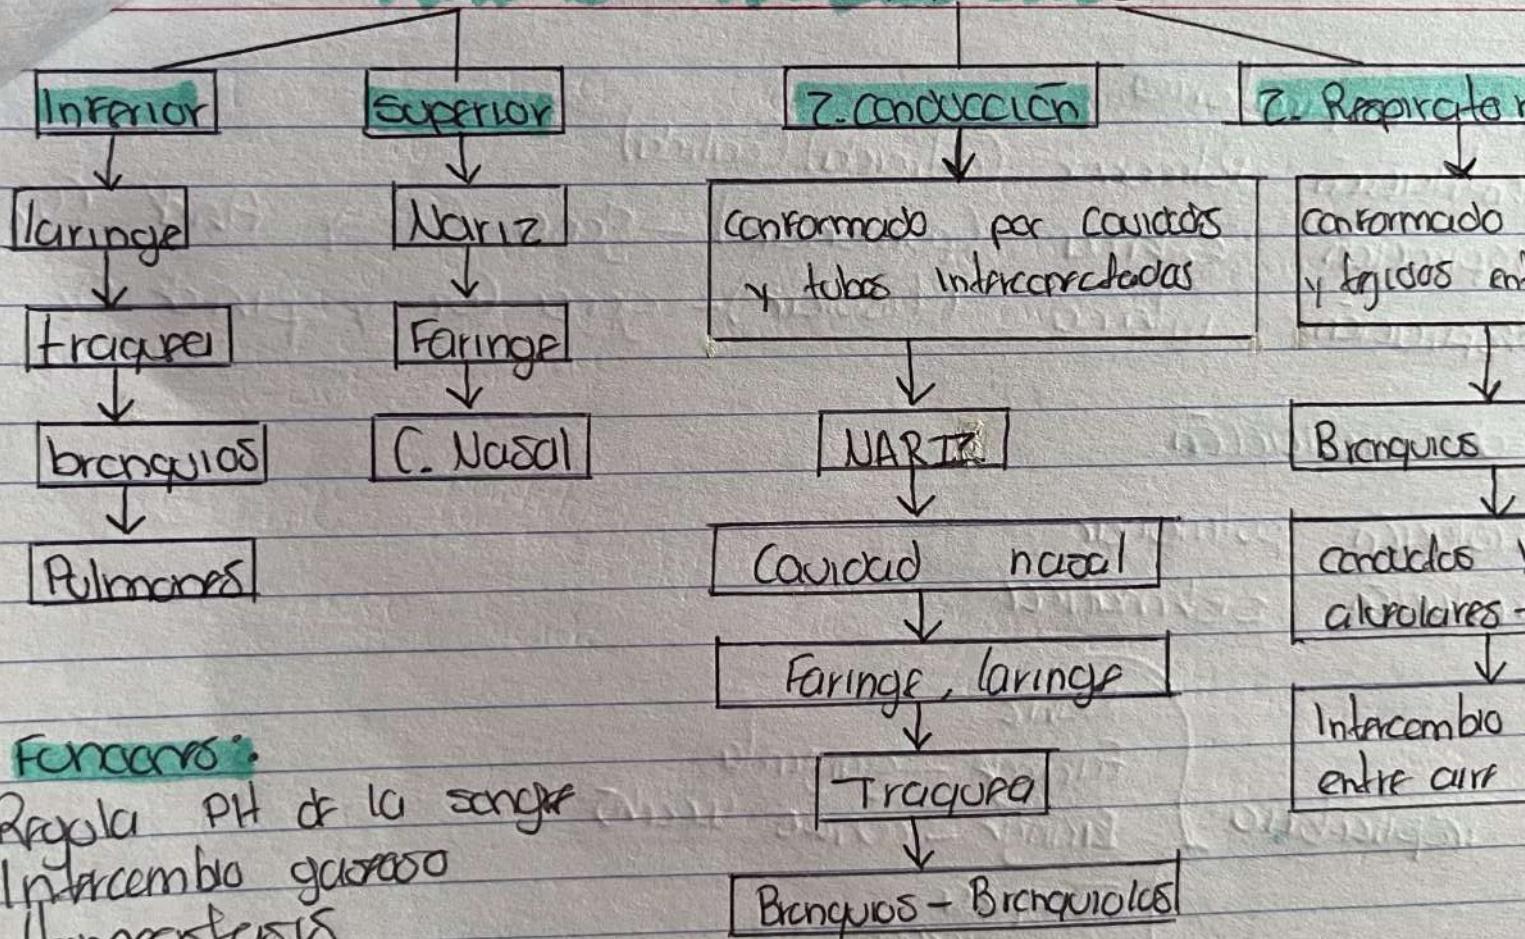 Inferior
laringe
traquea
bronquios
Pulmones
Superior
Nariz
Faringe
C. Nasal
Z. conducción
conformado por cavidades
y tubos interconectados
NARIZ
Cavidad nasal
Faringe, laringe
Traquea
Bronquios - Bronquiolos
Z. Respirator
conformado
y tejidos en
Bronquios
conductos y
alveolares -
Intercambio
entre aire
Funciones:
Regula PH de la sangre
Intercambio gaseoso